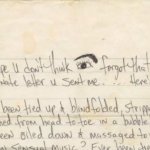 pe u don't think forgot that
nate letter u sent me... Here
been tied up & blindfolded, stripp
ed from head to toe in a bubble
een oiled down & massaged to
t sensual music? Ever been he